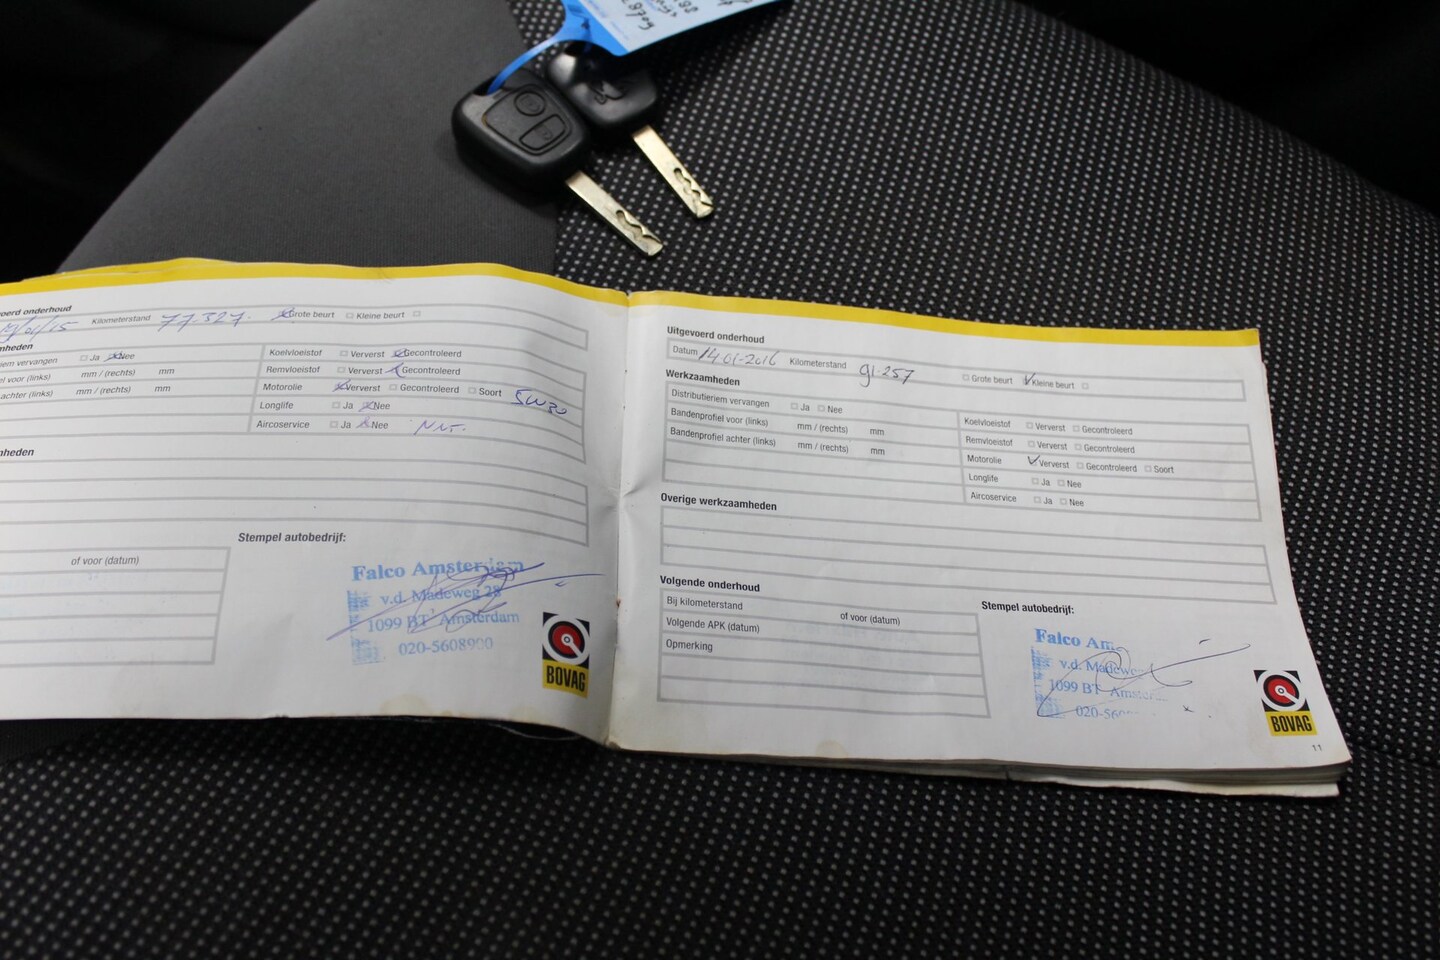 8709
oerd onderhoud
/01/15 Kilometerstand 77.327. Grote beurt Kleine beurt
nheden
iem vervangen Ja Nee
el voor (links) mm / (rechts) mm
achter (links) mm / (rechts) mm
Koelvloeistof Ververst Gecontroleerd
Remvloeistof Ververst Gecontroleerd
Motorolie Ververst Gecontroleerd Soort 5W30
Longlife Ja Nee
Aircoservice Ja Nee
nheden
of voor (datum)
Stempel autobedrijf:
Falco Amsterdam
v.d. Madeweg 28
1099 BT Amsterdam
020-5608900
BOVAG
Uitgevoerd onderhoud
Datum 14-01-2016 Kilometerstand 91.257 Grote beurt Kleine beurt
Werkzaamheden
Distributieriem vervangen Ja Nee
Bandenprofiel voor (links) mm / (rechts) mm
Bandenprofiel achter (links) mm / (rechts) mm
Koelvloeistof Ververst Gecontroleerd
Remvloeistof Ververst Gecontroleerd
Motorolie Ververst Gecontroleerd Soort
Longlife Ja Nee
Aircoservice Ja Nee
Overige werkzaamheden
Volgende onderhoud
Bij kilometerstand of voor (datum)
Volgende APK (datum)
Opmerking
Stempel autobedrijf:
Falco Am
v.d. Madewe
1099 BT Amster
020-560
BOVAG
11